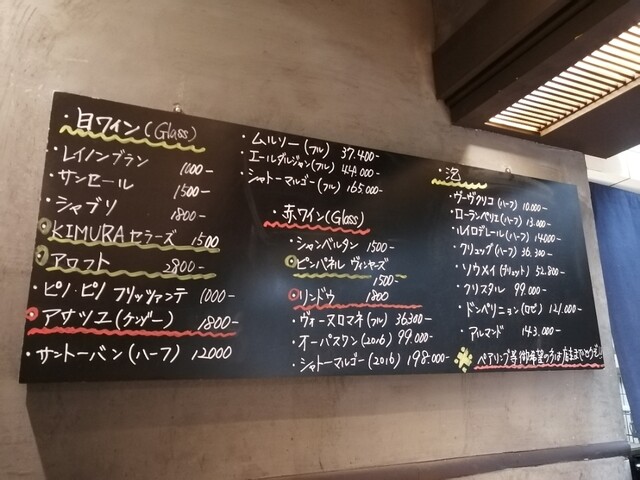 ・白ワイン(Glass)
・レイノンブラン 1000-
・サンセール 1500-
・シャブリ 1800-
・KIMURAセラーズ 1500
・アワフト 2800-
・ピノ・ピノ フリッツァンテ 1000-
・アサツユ(ケンゾー) 1800-
・サントーバン(ハーフ) 12000
・ムルソー(フル) 37.400-
・エールダルジャン(フル) 44.000-
・シャトーマルゴー(フル) 165.000
・赤ワイン(Glass)
・シャンベルタン 1500-
・ピンパネル ヴィンヤーズ
1500-
・リンドウ 1800
・ヴォーヌロマネ(フル) 36300-
・オーパスワン(2016) 99.000-
・シャトーマルゴー(2016) 198.000-
・泡
・ヴーヴクリコ(ハーフ) 10.000-
・ローランペリエ(ハーフ) 13.000-
・ルイロデレール(ハーフ) 14000-
・クリュッグ(ハーフ) 36.300-
・ソウメイ(ブリュット) 52.800-
・クリスタル 99.000-
・ドンペリニョン(ロゼ) 121.000-
・アルマンド 143.000-
ペアリング等御希望の方は店主まで